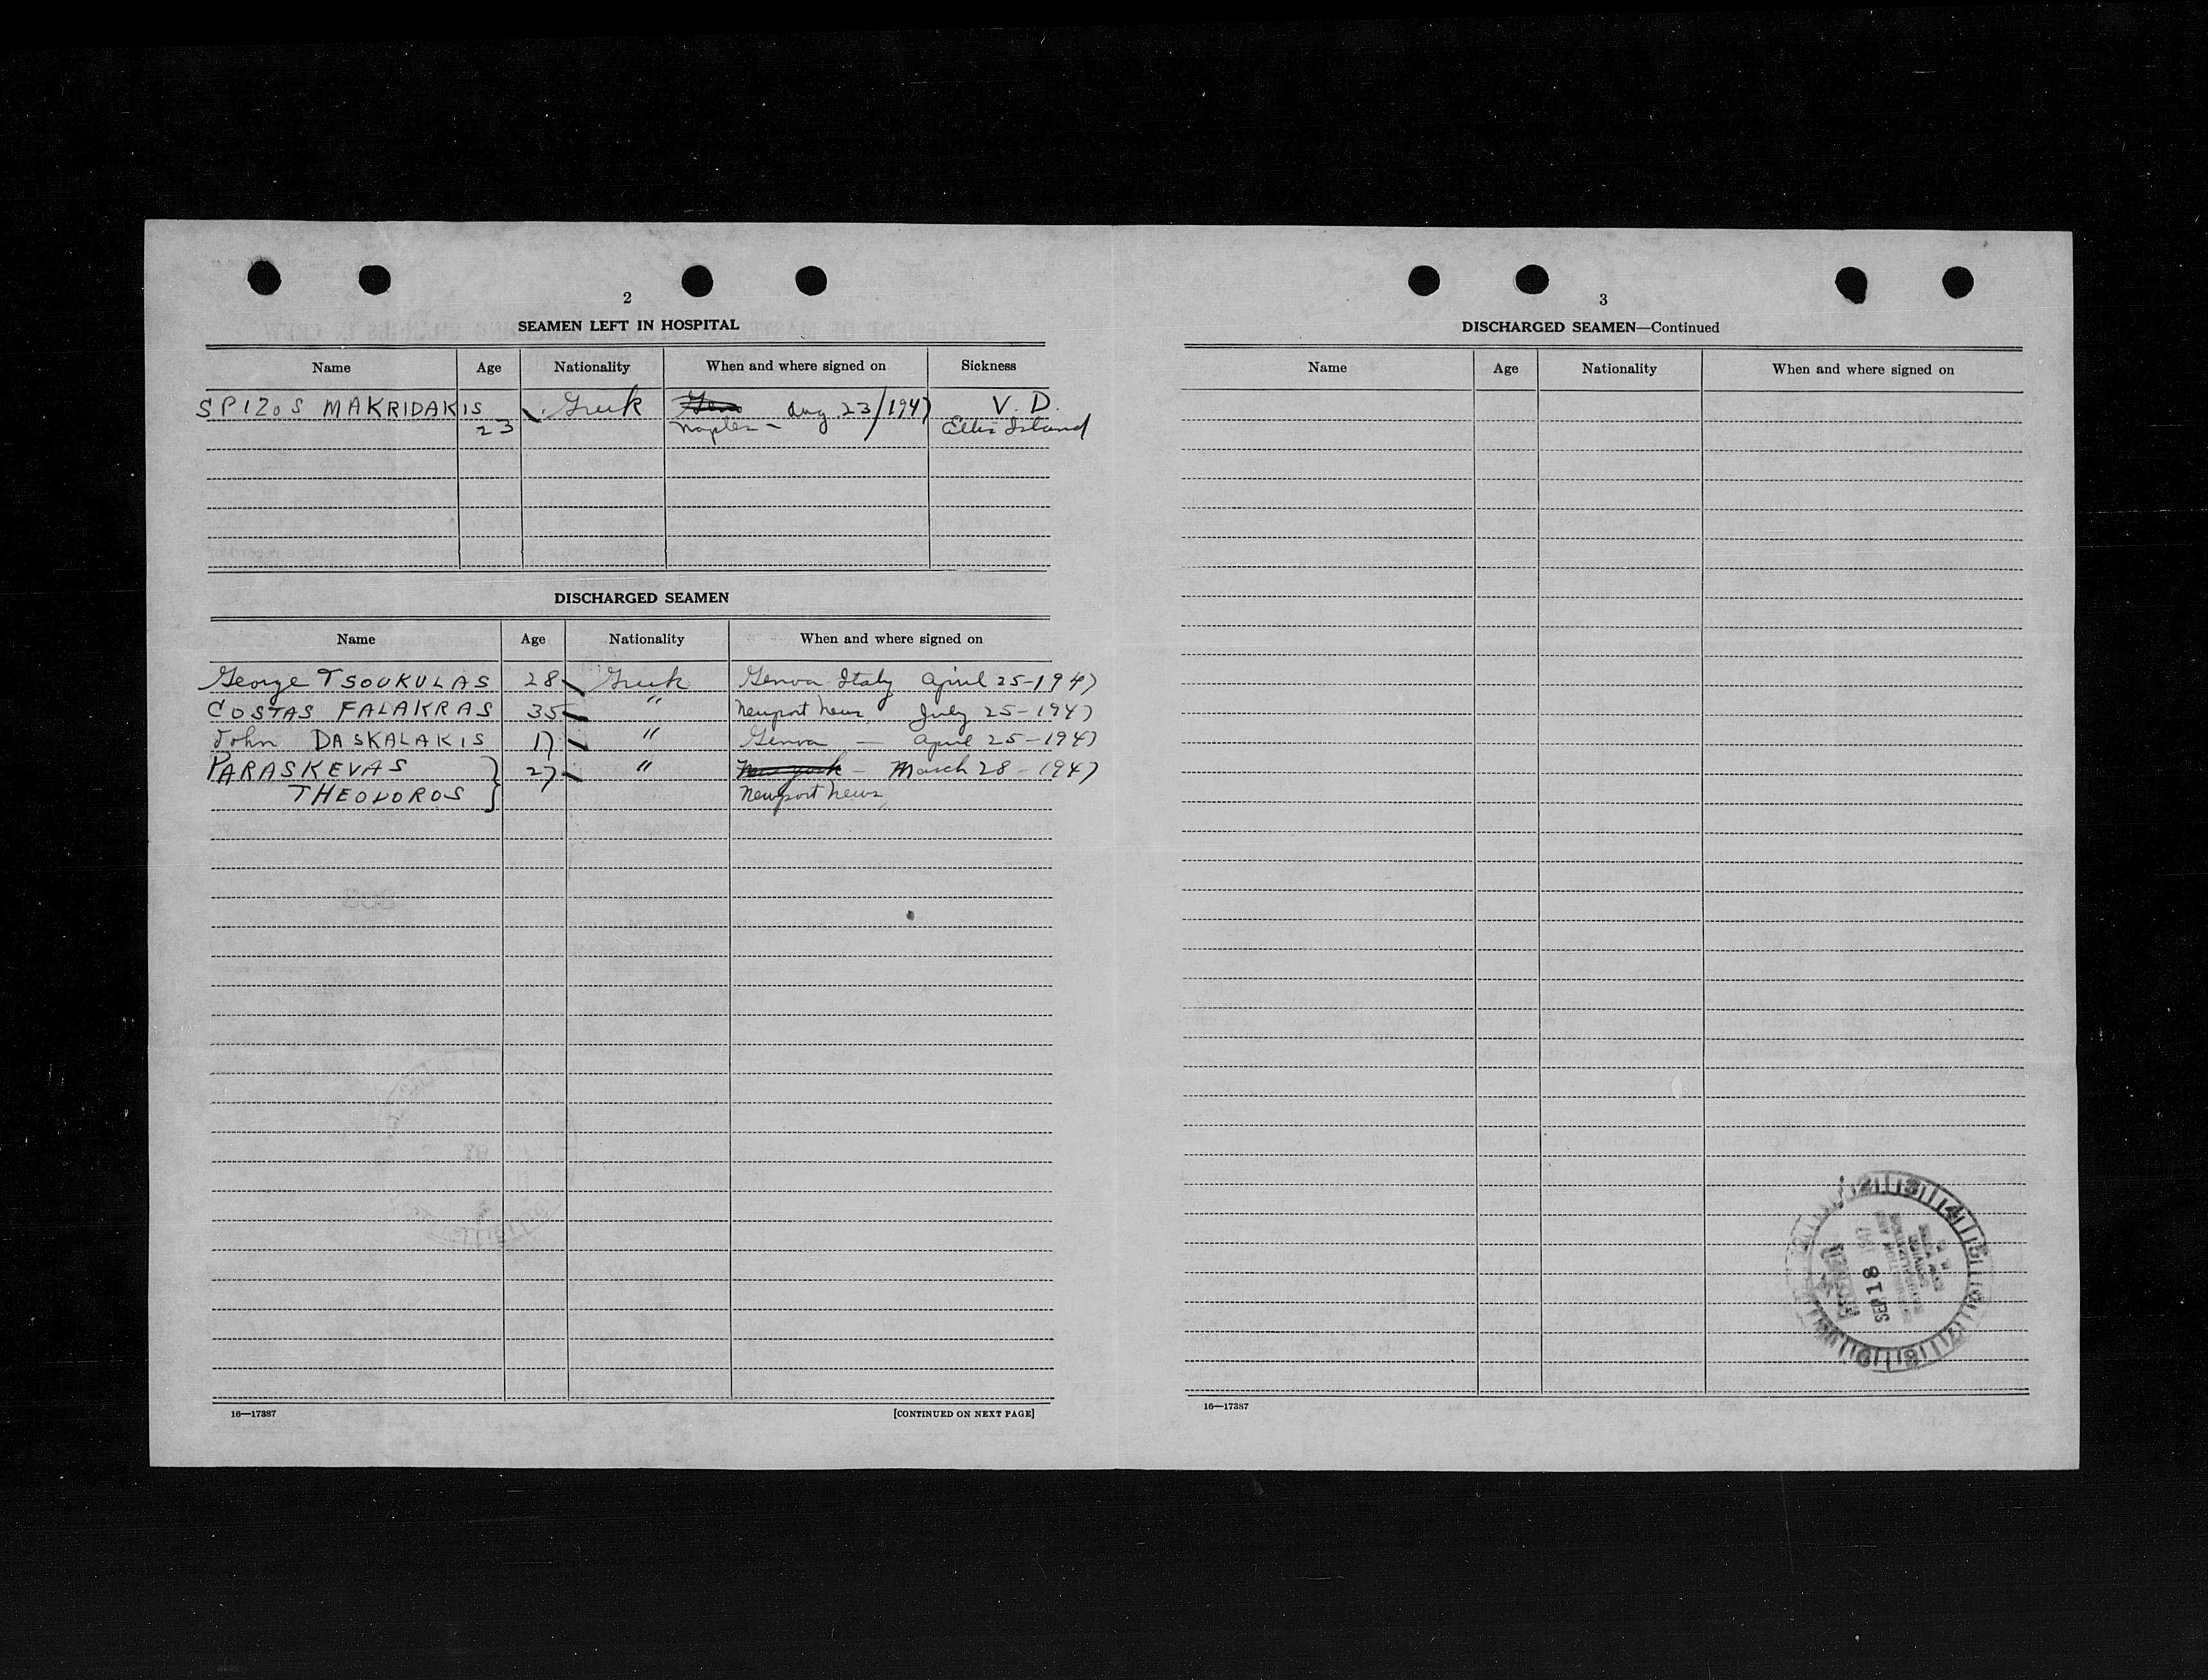 2
SEAMEN LEFT IN HOSPITAL
Name Age Nationality When and where signed on Sickness
SPIZOS MAKRIDAKIS Greek Aug 23/1947 V. D.
23 Naples - Ellis Island
DISCHARGED SEAMEN
Name Age Nationality When and where signed on
George TSOUKULAS 28 Greek Genova Italy April 25-1947
COSTAS FALAKRAS 35 " Newport News July 25-1947
John DASKALAKIS 17 " Genova — April 25-1947
PARASKEVAS } 27 " New York - March 28-1947
THEODOROS Newport News
16—17387 [CONTINUED ON NEXT PAGE]
3
DISCHARGED SEAMEN—Continued
Name Age Nationality When and where signed on
SEP 18
16—17387